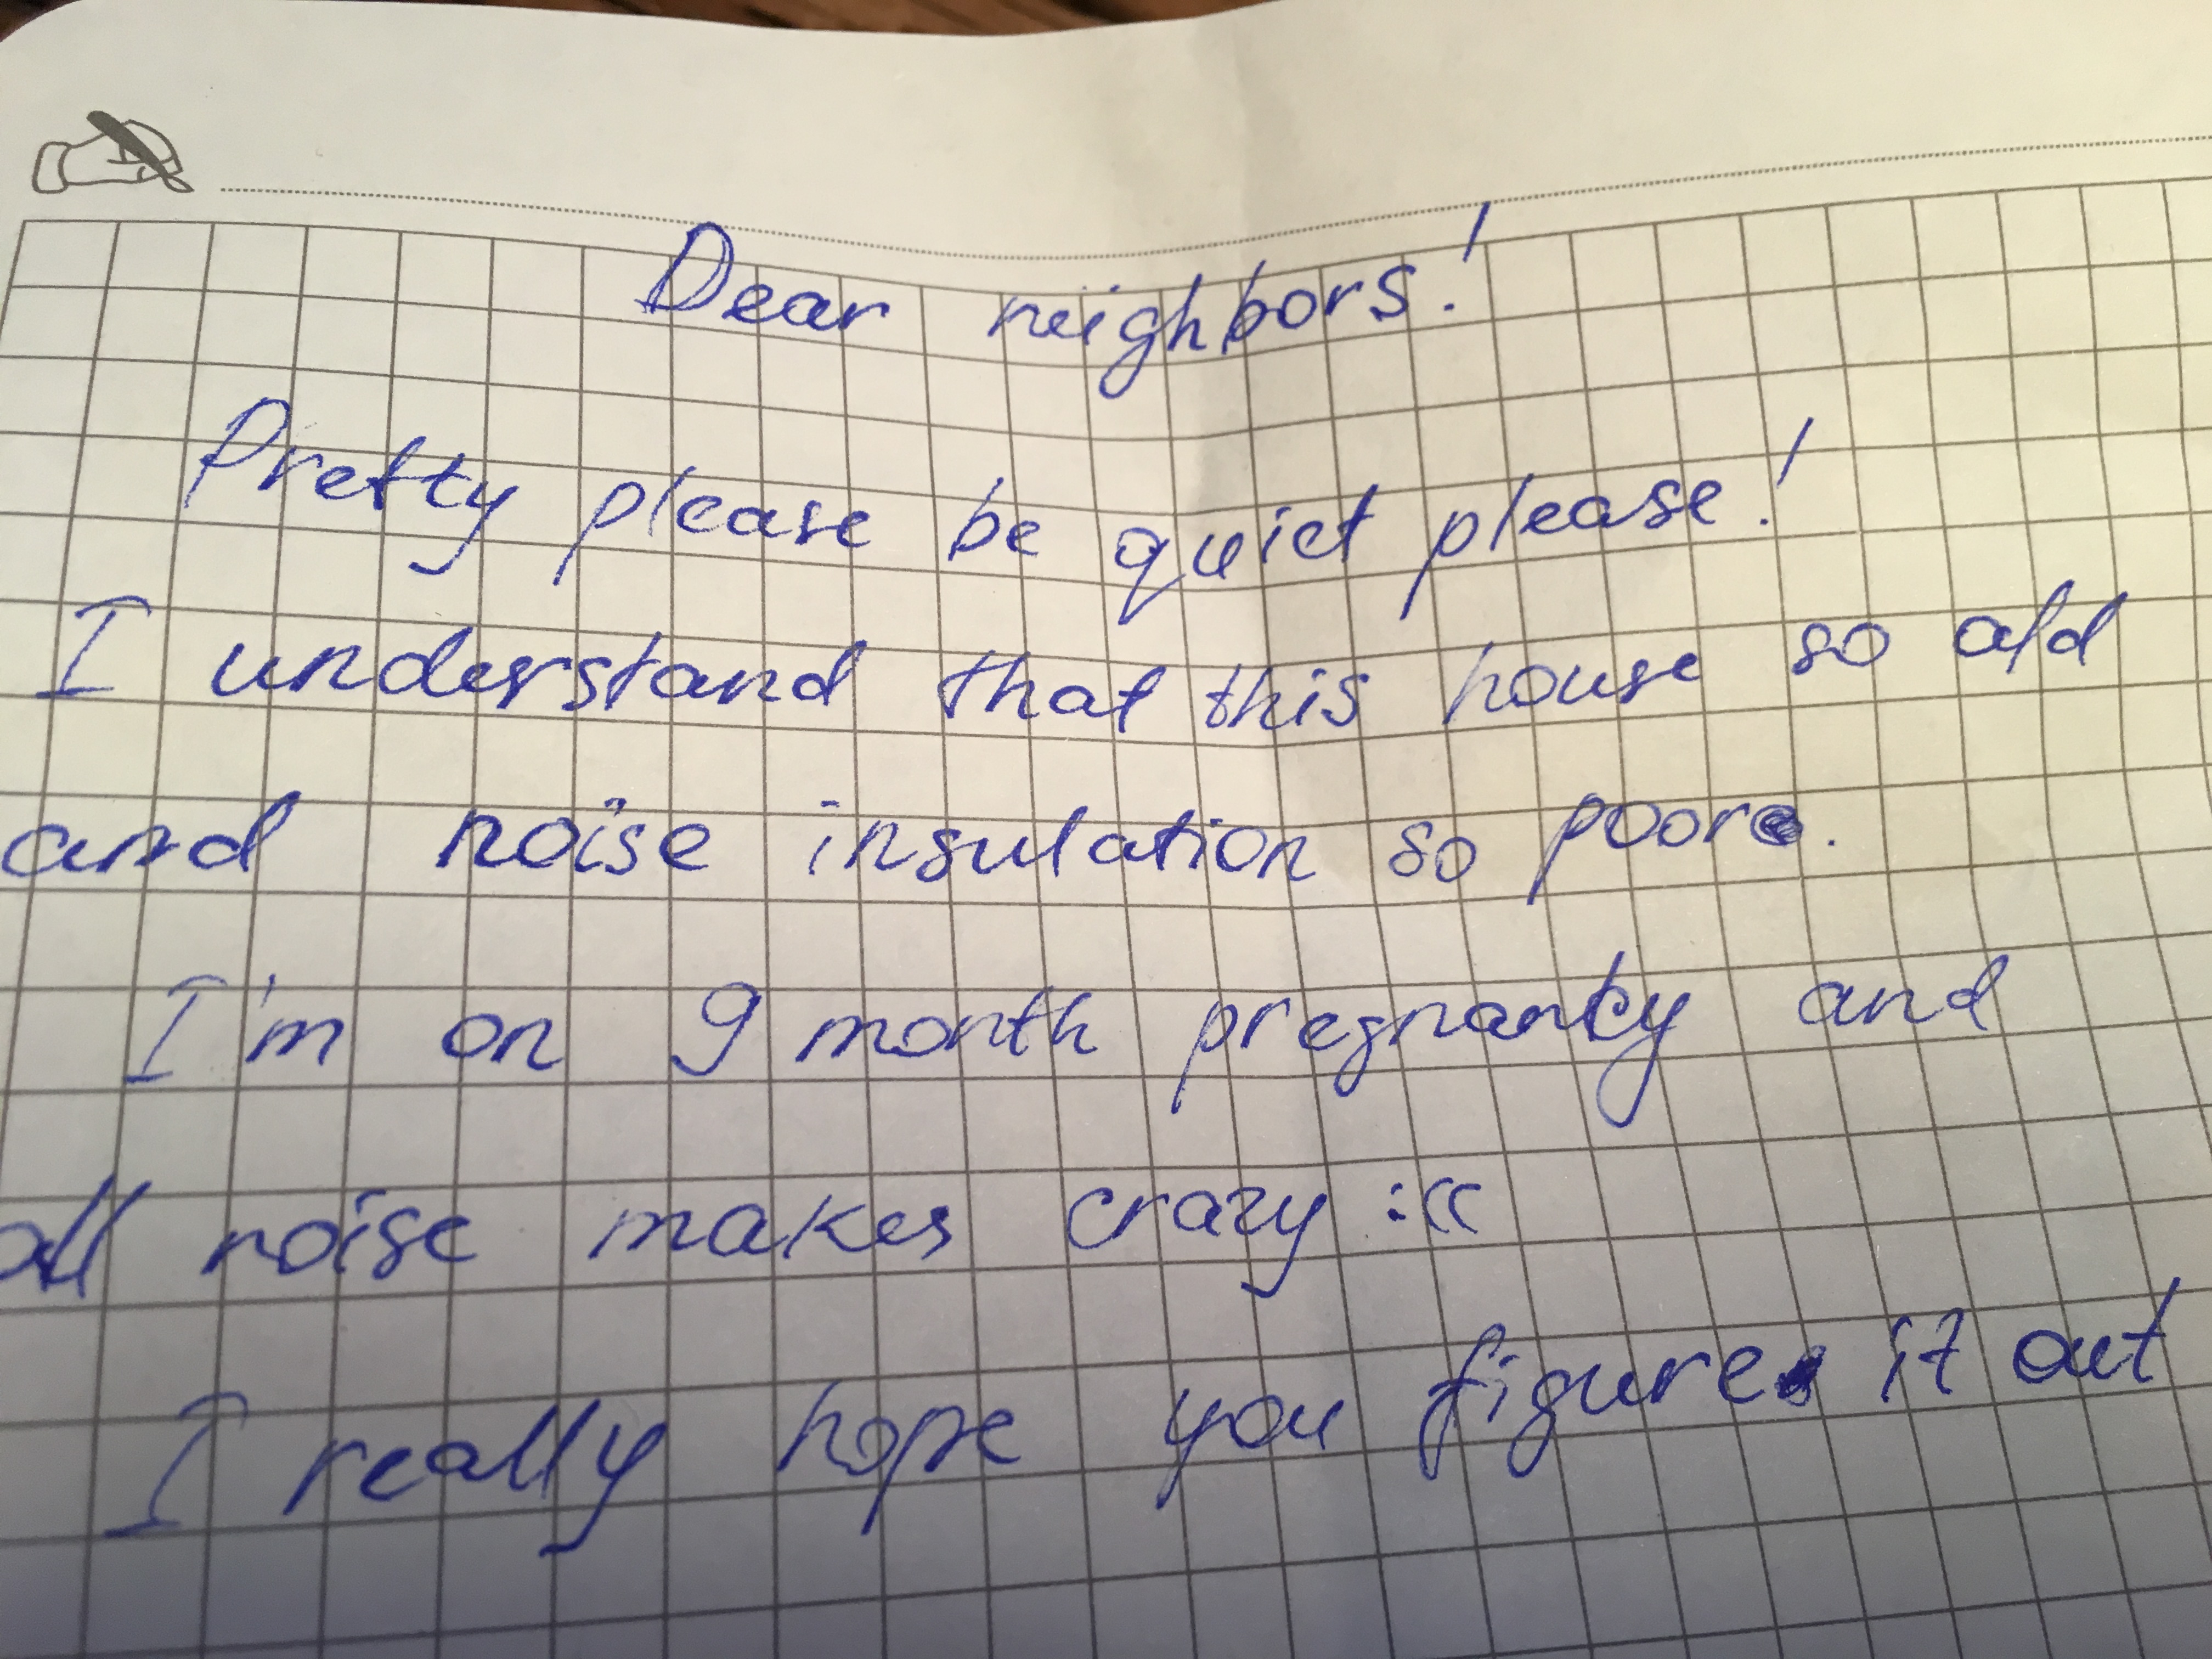 Dear neighbors!
Pretty please be quiet please!
I understand that this house so old
and noise insulation so poor.
I'm on 9 month pregnancy and
all noise makes crazy :((
I really hope you figure it out